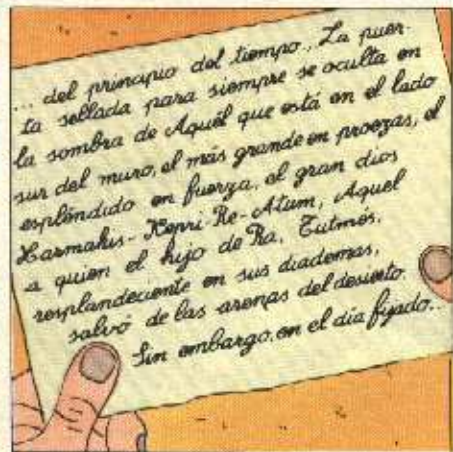 ... del principio del tiempo... La puer-
ta sellada para siempre se oculta en
la sombra de Aquél que está en el lado
sur del muro, el más grande en proezas, el
espléndido en fuerza, el gran dios
Harmakis-Kepri-Re-Atum, Aquel
a quien el hijo de Ra, Tutmés,
resplandeciente en sus diademas,
salvó de las arenas del desierto.
Sin embargo, en el día fijado...